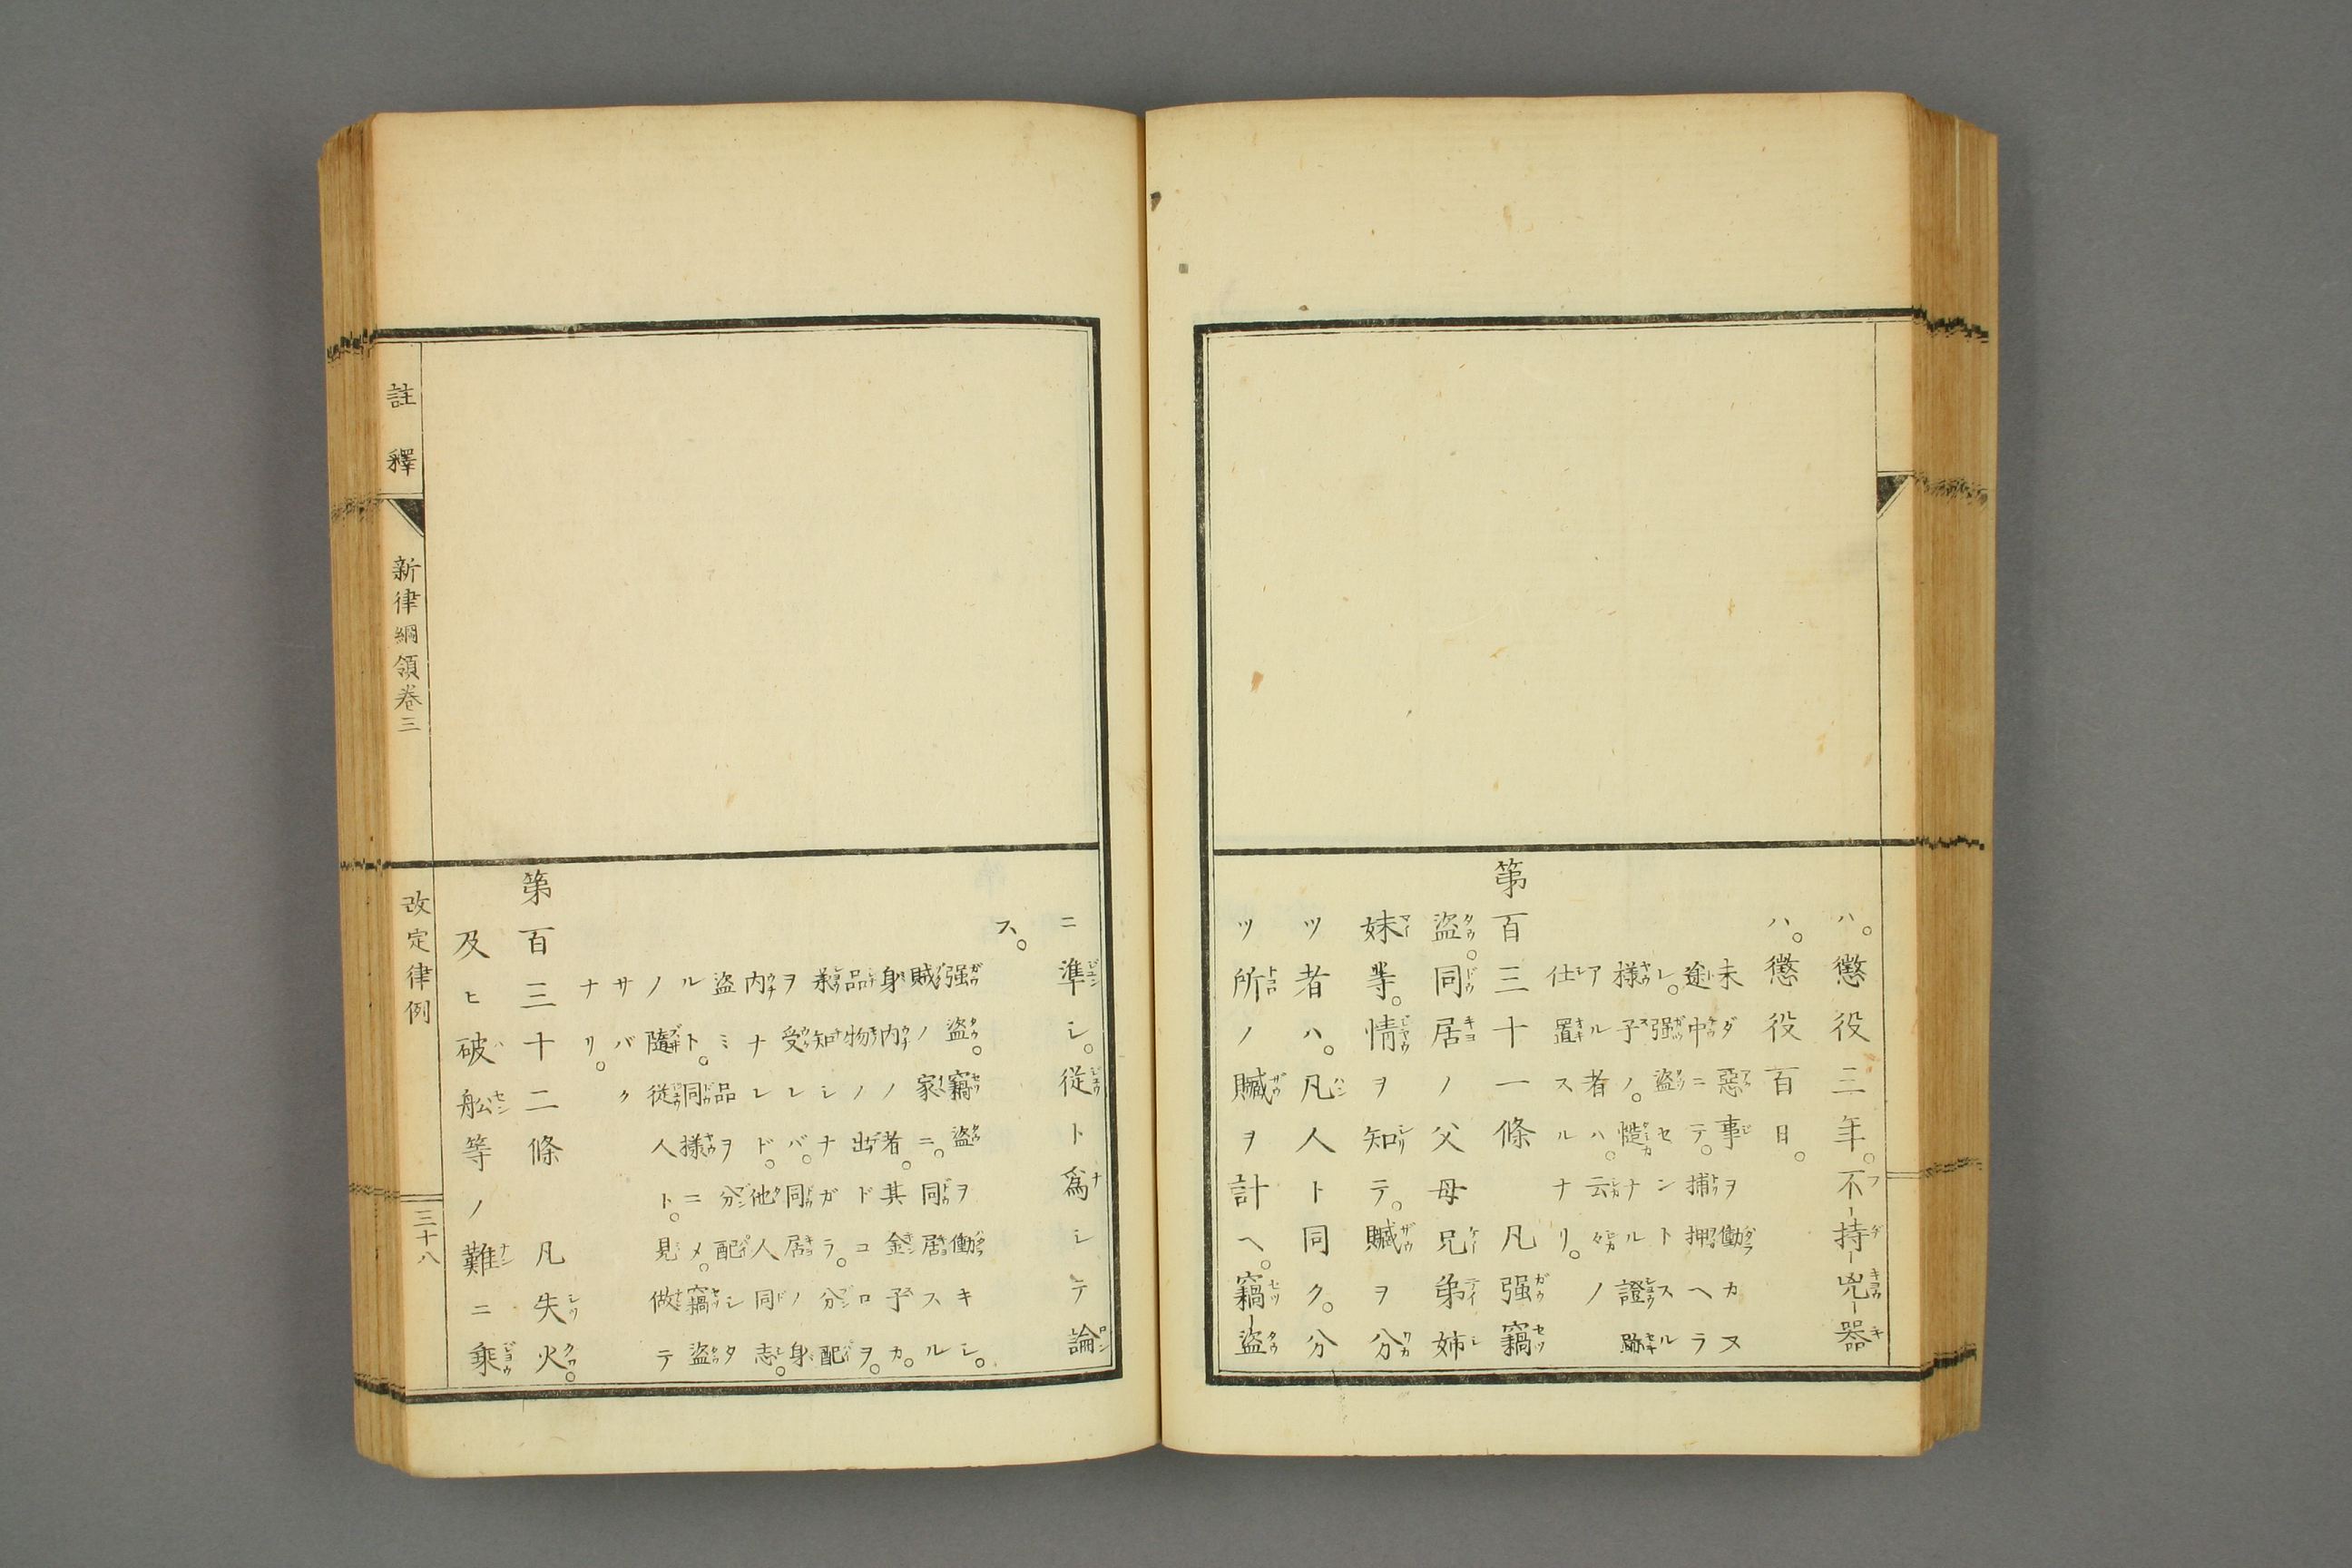 ハ。懲役三年。不持兇器
ハ。懲役百日。
未ダ惡事ヲ働カヌ
途中ニテ。捕押ヘラ
レ。强盜セントスル
様子ノ。慥ナル證跡
アル者ハ。云々ノ
仕置スルナリ。
第百三十一條 凡强竊
盜。同居ノ父母兄弟姉
妹等。情ヲ知テ。贓ヲ分
ツ者ハ。凡人ト同ク。分
ツ所ノ贓ヲ計ヘ。竊盜
ニ準シ。從ト爲シテ論
ス。
强盜。竊盜ヲ働キシ。
賊ノ家ニ。同居スル
身内ノ者。其金子カ。
品物ノ出ドコロヲ。
承知シナガラ。分配
ヲ受レバ。同居ノ身
内ナレド。他人同志。
盜ミ品ヲ分配シタ
ルト。同様ニメ。竊盜
ノ隨從人ト。見做テ
サバク
ナリ。
第百三十二條 凡失火。
及ヒ破舩等ノ難ニ乘
註釋 新律綱領卷三 改定律例 三十八